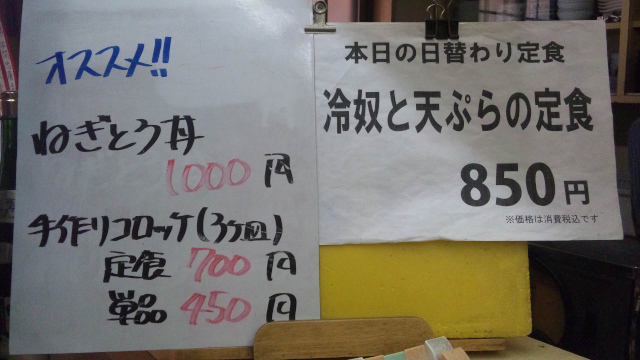 オススメ!!
ねぎとろ丼
1000円
手作りコロッケ(3ヶ皿)
定食 700円
単品 450円
本日の日替わり定食
冷奴と天ぷらの定食
850円
※価格は消費税込です